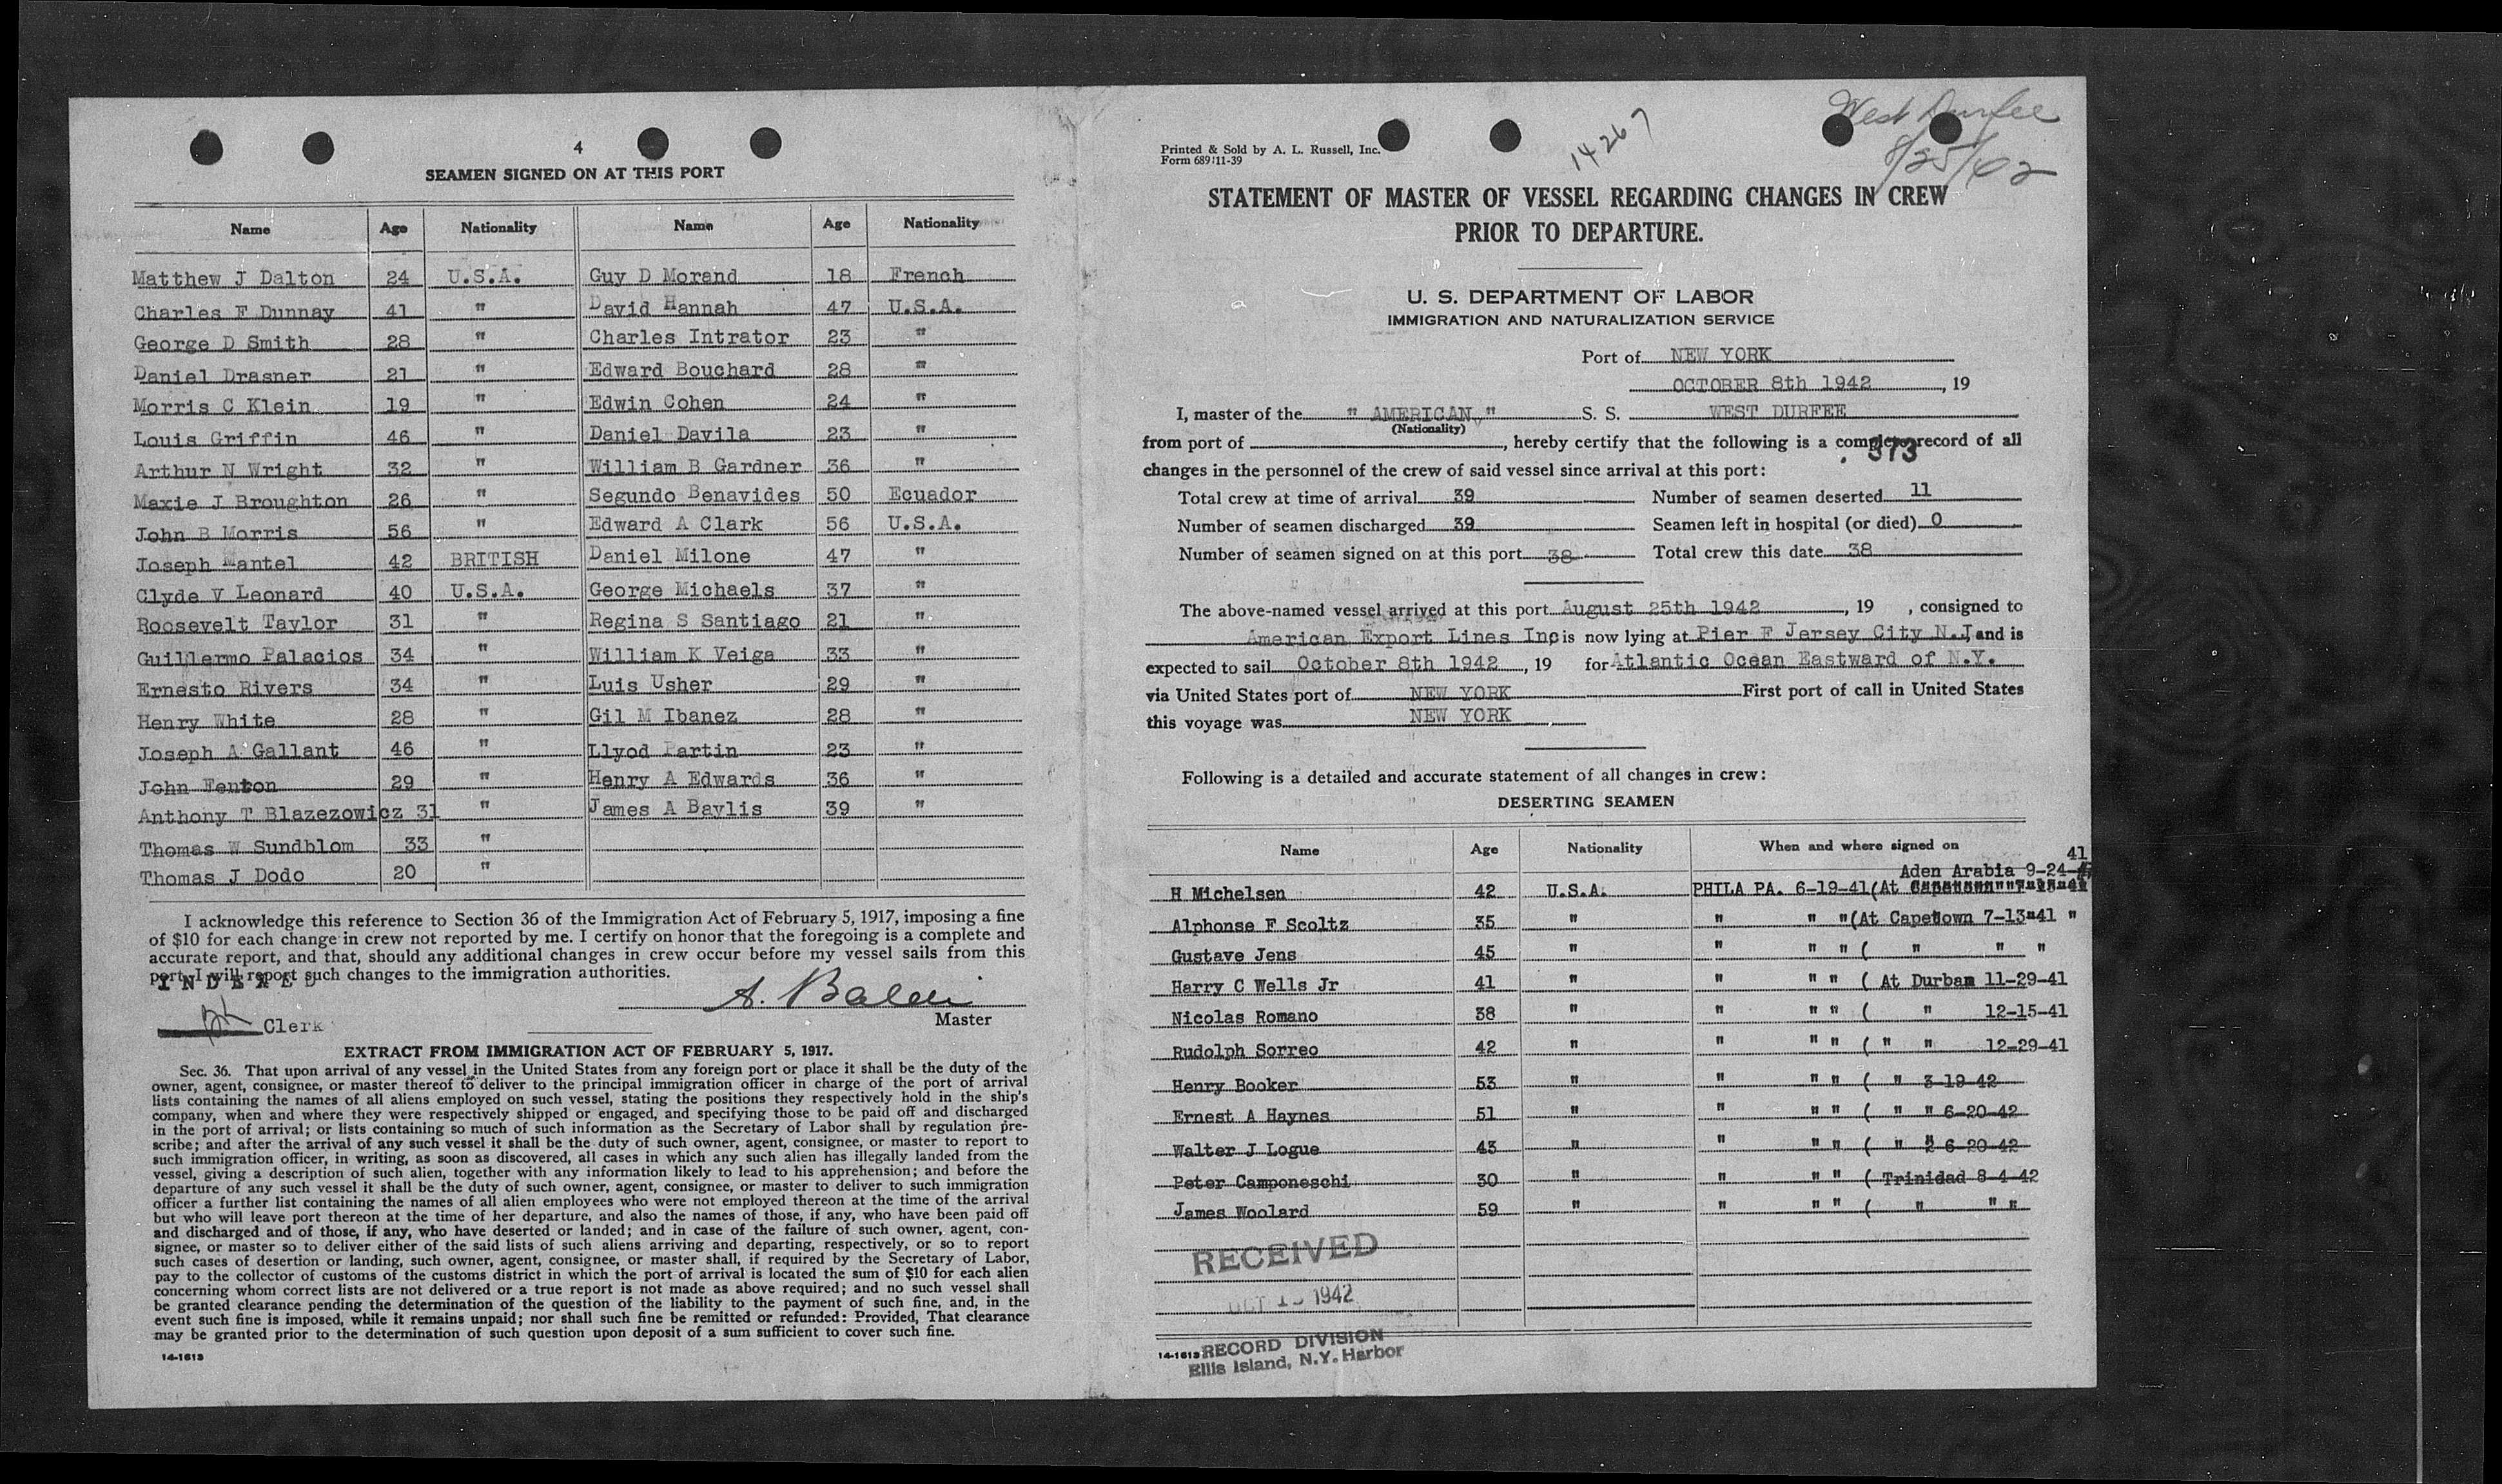 4
SEAMEN SIGNED ON AT THIS PORT
Name Age Nationality Name Age Nationality
Matthew J Dalton 24 U.S.A. Guy D Morand 18 French
Charles F Dunnay 41 " David Hannah 47 U.S.A.
George D Smith 28 " Charles Intrator 23 "
Daniel Drasner 21 " Edward Bouchard 28 "
Morris C Klein 19 " Edwin Cohen 24 "
Louis Griffin 46 " Daniel Davila 23 "
Arthur N Wright 32 " William B Gardner 36 "
Maxie J Broughton 26 " Segundo Benavides 50 Ecuador
John B Morris 56 " Edward A Clark 56 U.S.A.
Joseph Mantel 42 BRITISH Daniel Milone 47 "
Clyde V Leonard 40 U.S.A. George Michaels 37 "
Roosevelt Taylor 31 " Regina S Santiago 21 "
Guillermo Palacios 34 " William K Veiga 33 "
Ernesto Rivers 34 " Luis Usher 29 "
Henry White 28 " Gil M Ibanez 28 "
Joseph A Gallant 46 " Llyod Partin 23 "
John Fenton 29 " Henry A Edwards 36 "
Anthony T Blazezowicz 31 " James A Baylis 39 "
Thomas W Sundblom 33 "
Thomas J Dodo 20 "
I acknowledge this reference to Section 36 of the Immigration Act of February 5, 1917, imposing a fine
of $10 for each change in crew not reported by me. I certify on honor that the foregoing is a complete and
accurate report, and that, should any additional changes in crew occur before my vessel sails from this
port, I will report such changes to the immigration authorities.
INDEXED
A.
Clerk
Master
EXTRACT FROM IMMIGRATION ACT OF FEBRUARY 5, 1917.
Sec. 36. That upon arrival of any vessel in the United States from any foreign port or place it shall be the duty of the
owner, agent, consignee, or master thereof to deliver to the principal immigration officer in charge of the port of arrival
lists containing the names of all aliens employed on such vessel, stating the positions they respectively hold in the ship's
company, when and where they were respectively shipped or engaged, and specifying those to be paid off and discharged
in the port of arrival; or lists containing so much of such information as the Secretary of Labor shall by regulation pre-
scribe; and after the arrival of any such vessel it shall be the duty of such owner, agent, consignee, or master to report to
such immigration officer, in writing, as soon as discovered, all cases in which any such alien has illegally landed from the
vessel, giving a description of such alien, together with any information likely to lead to his apprehension; and before the
departure of any such vessel it shall be the duty of such owner, agent, consignee, or master to deliver to such immigration
officer a further list containing the names of all alien employees who were not employed thereon at the time of the arrival
but who will leave port thereon at the time of her departure, and also the names of those, if any, who have been paid off
and discharged and of those, if any, who have deserted or landed; and in case of the failure of such owner, agent, con-
signee, or master so to deliver either of the said lists of such aliens arriving and departing, respectively, or so to report
such cases of desertion or landing, such owner, agent, consignee, or master shall, if required by the Secretary of Labor,
pay to the collector of customs of the customs district in which the port of arrival is located the sum of $10 for each alien
concerning whom correct lists are not delivered or a true report is not made as above required; and no such vessel shall
be granted clearance pending the determination of the question of the liability to the payment of such fine, and, in the
event such fine is imposed, while it remains unpaid; nor shall such fine be remitted or refunded: Provided, That clearance
may be granted prior to the determination of such question upon deposit of a sum sufficient to cover such fine.
14-1613
West Durfee
8/25/42
14267
Printed & Sold by A. L. Russell, Inc.
Form 689:11-39
STATEMENT OF MASTER OF VESSEL REGARDING CHANGES IN CREW
PRIOR TO DEPARTURE.
U. S. DEPARTMENT OF LABOR
IMMIGRATION AND NATURALIZATION SERVICE
Port of NEW YORK
OCTOBER 8th 1942, 19
I, master of the " AMERICAN " S. S. WEST DURFEE
(Nationality)
from port of , hereby certify that the following is a complete record of all
373
changes in the personnel of the crew of said vessel since arrival at this port:
Total crew at time of arrival 39 Number of seamen deserted 11
Number of seamen discharged 39 Seamen left in hospital (or died) 0
Number of seamen signed on at this port 38 Total crew this date 38
The above-named vessel arrived at this port August 25th 1942, 19 , consigned to
American Export Lines Inc, is now lying at Pier F Jersey City N.J and is
expected to sail October 8th 1942, 19 for Atlantic Ocean Eastward of N.Y.
via United States port of NEW YORK First port of call in United States
this voyage was NEW YORK
Following is a detailed and accurate statement of all changes in crew:
DESERTING SEAMEN
Name Age Nationality When and where signed on
41
Aden Arabia 9-24-
H Michelsen 42 U.S.A. PHILA PA. 6-19-41(At
Alphonse F Scoltz 35 " " " "(At Capetown 7-13-41 "
Gustave Jens 45 " " " " ( " " "
Harry C Wells Jr 41 " " " " ( At Durban 11-29-41
Nicolas Romano 38 " " " " ( " 12-15-41
Rudolph Sorreo 42 " " " " ( " " 12-29-41
Henry Booker 53 " " " " ( " 3-19-42
Ernest A Haynes 51 " " " " ( " " 6-20-42
Walter J Logue 43 " " " " ( " " 6-20-42
Peter Camponeschi 30 " " " " ( Trinidad 8-4-42
James Woolard 59 " " " " ( " " "
RECEIVED
OCT 1942
14-1613
RECORD DIVISION
Ellis Island, N.Y. Harbor